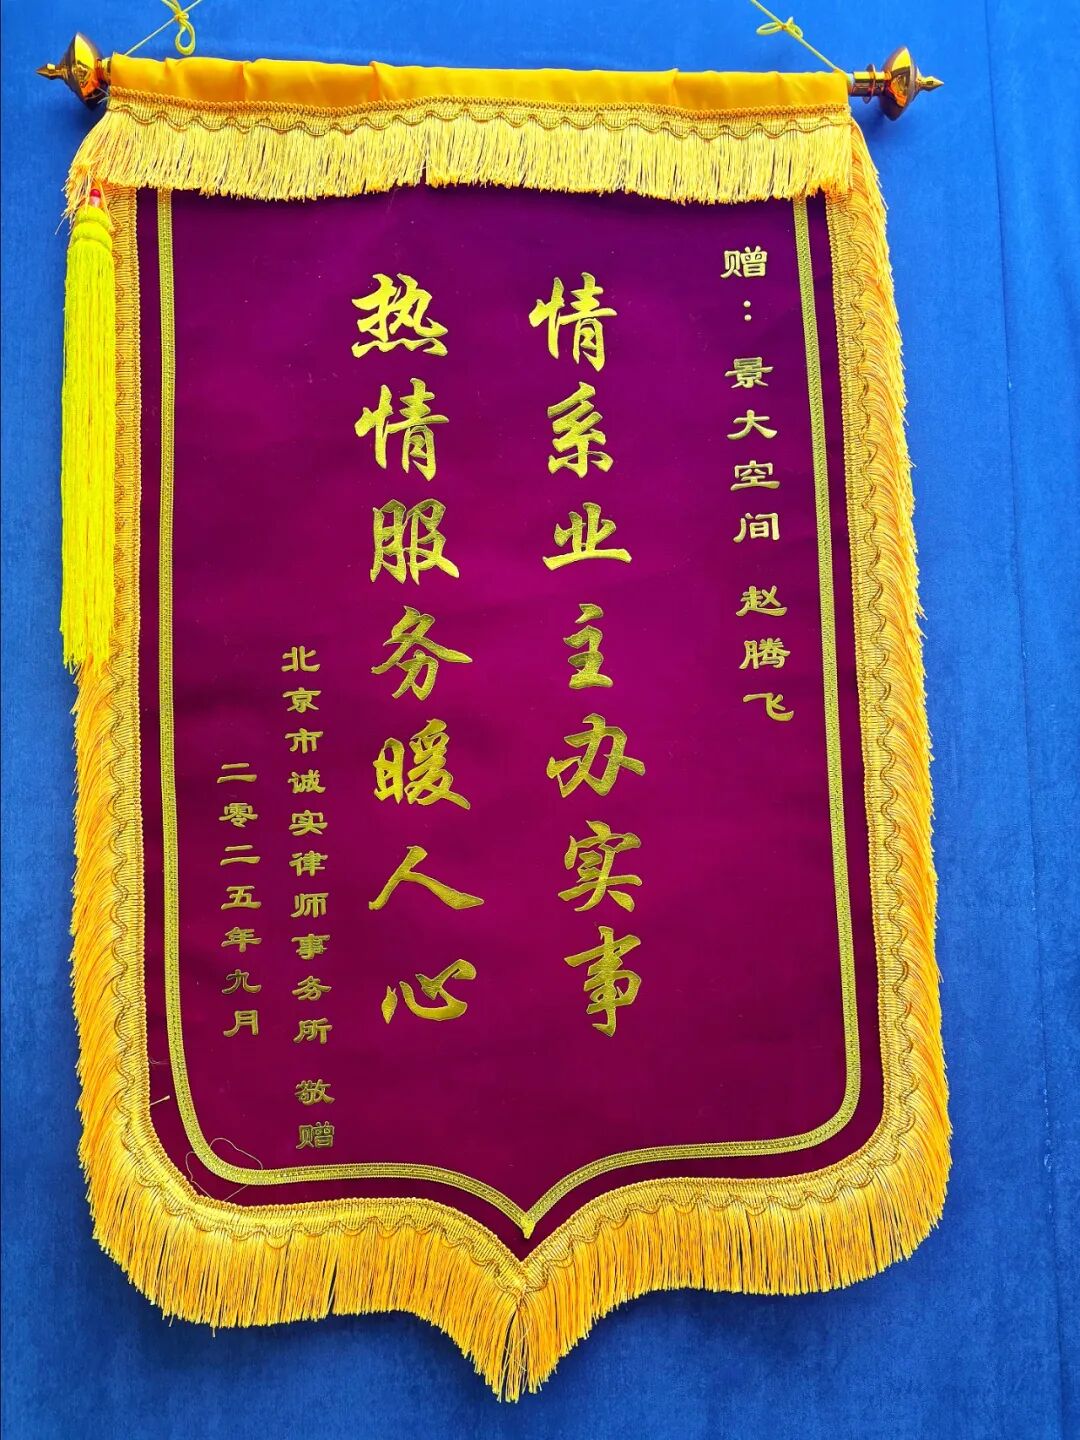 赠：景大空间 赵腾飞
情系业主办实事
热情服务暖人心
北京市诚实律师事务所 敬赠
二零二五年九月